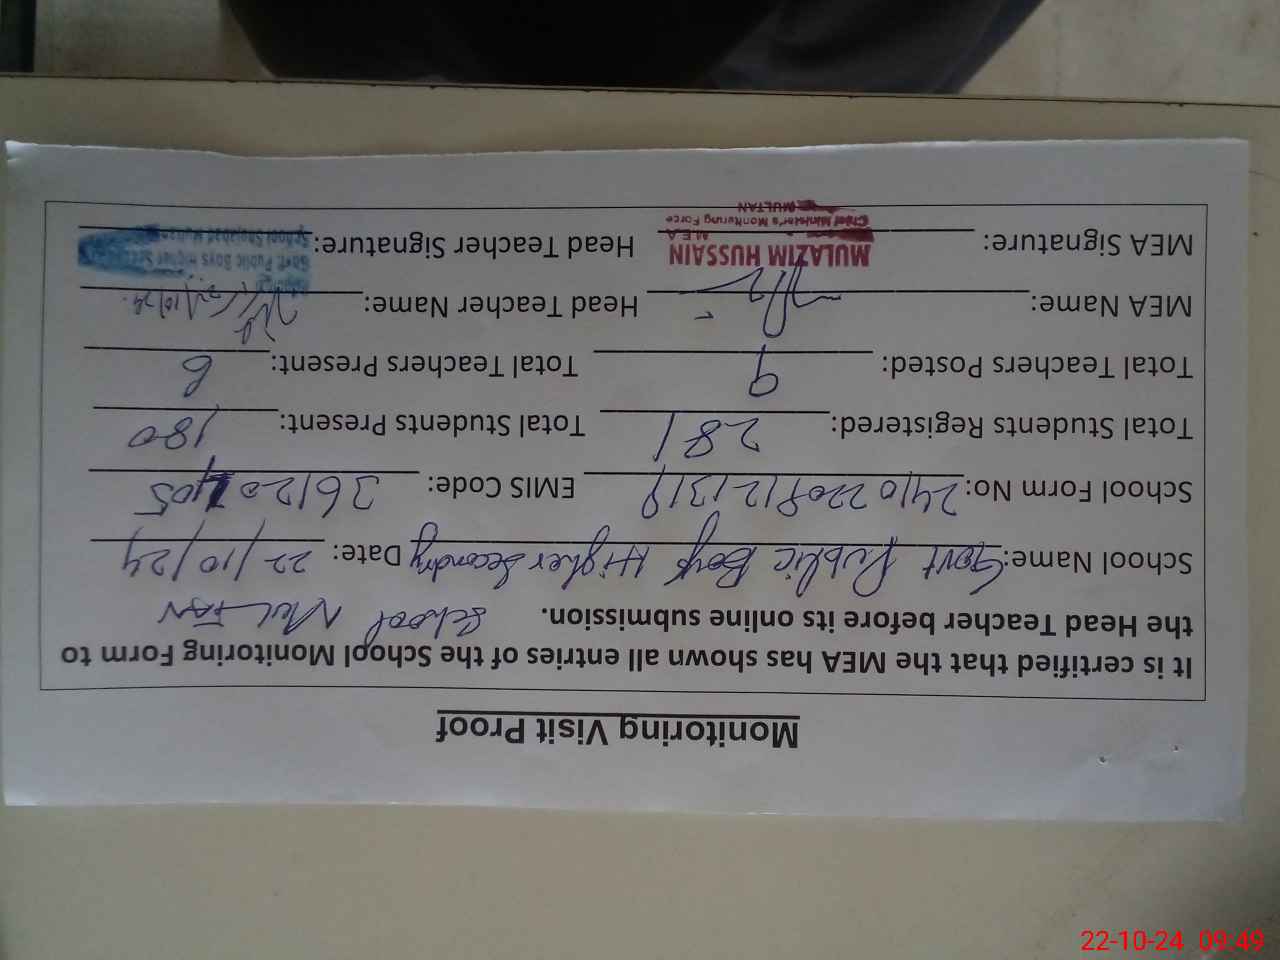 Monitoring Visit Proof
It is certified that the MEA has shown all entries of the School Monitoring Form to
the Head Teacher before its online submission. School MULTAN
School Name: Govt Public Boys Higher Secondry Date: 22/10/24
School Form No: EMIS Code:
Total Students Registered: 281 Total Students Present: 180
Total Teachers Posted: 9 Total Teachers Present: 6
MEA Name: Head Teacher Name:
MEA Signature: MULAZIM HUSSAIN Head Teacher Signature: Govt. Public Boys Higher
M.E.A School Shujabad Multan
Chief Minister's Monitoring Force
MULTAN
22-10-24 09:49